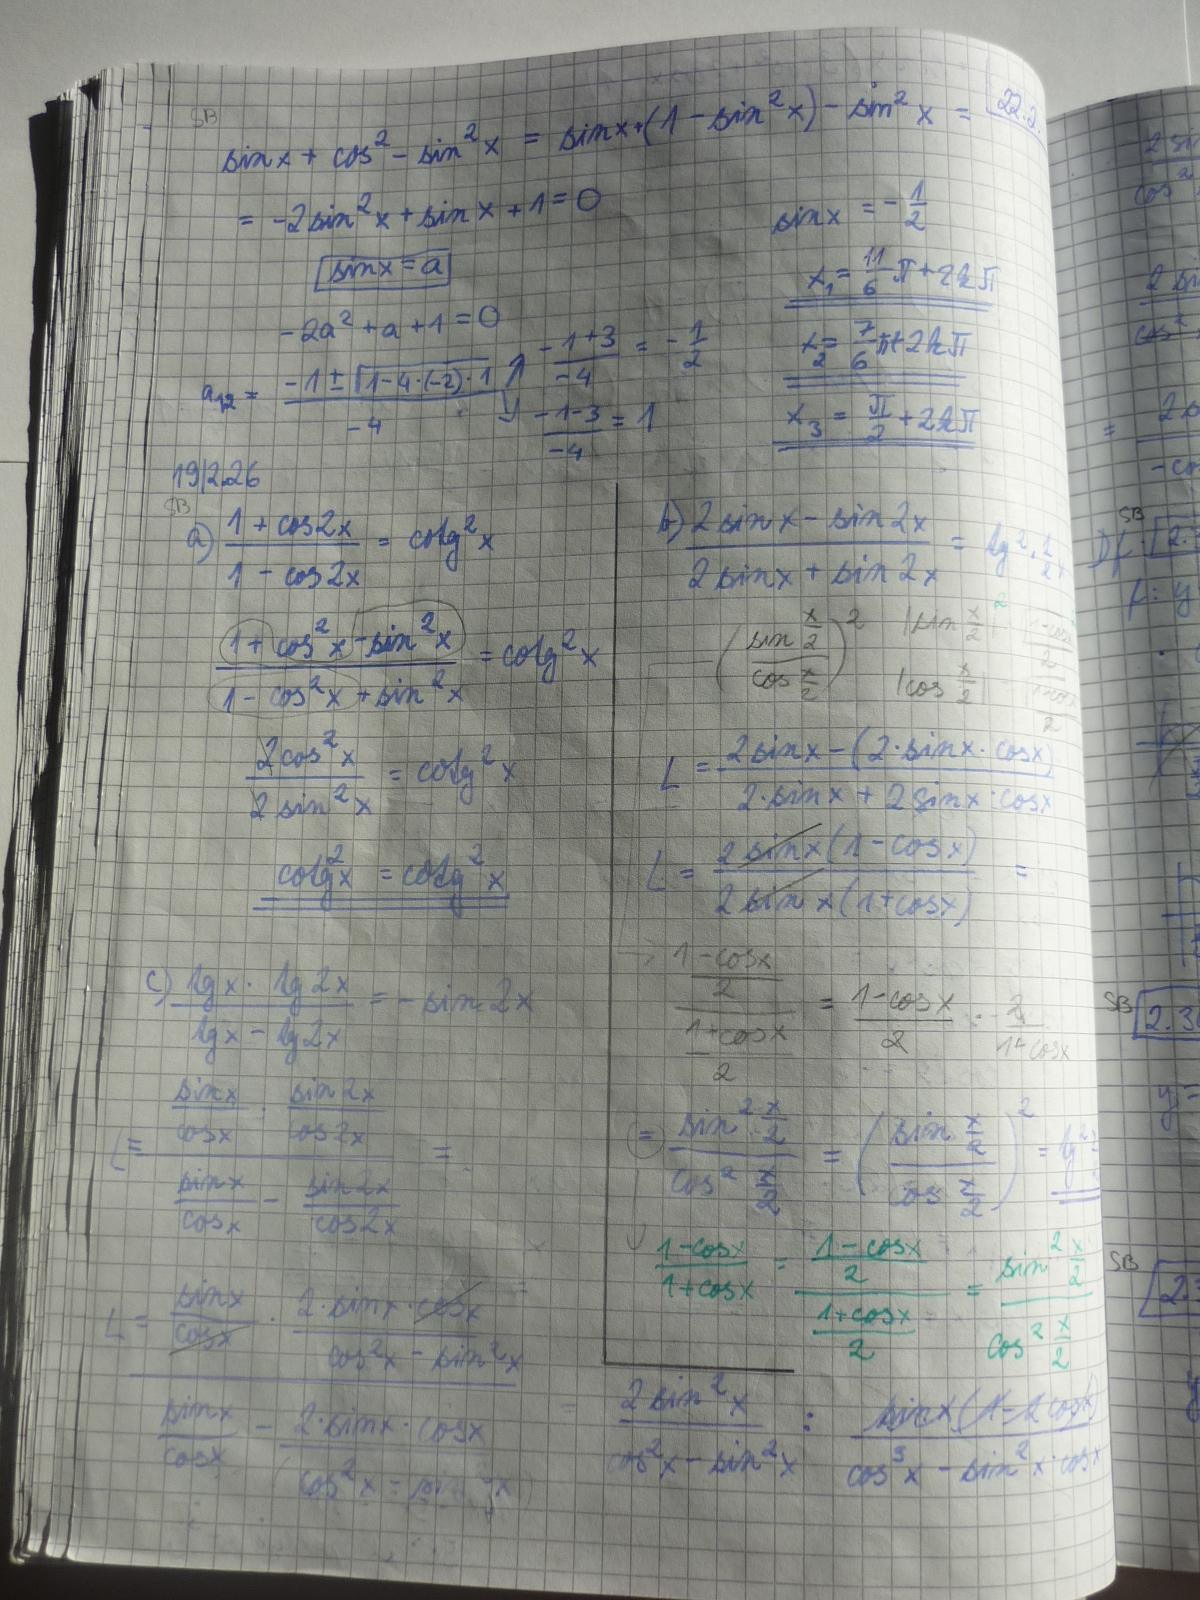 SB
22.2.
sinx + cos² - sin²x = sinx+(1 - sin²x) - sin²x =
= -2sin²x + sinx + 1 = 0
sinx = a
-2a² + a + 1 = 0
a₁₂ = (-1 ± √(1-4·(-2)·1))/-4
(-1+3)/-4 = -1/2
(-1-3)/-4 = 1
sinx = -1/2
x₁ = 11/6 π + 2kπ
x₂ = 7/6 π + 2kπ
x₃ = π/2 + 2kπ
19/2.26
SB
a) (1 + cos2x)/(1 - cos2x) = cotg²x
(1 + cos²x - sin²x)/(1 - cos²x + sin²x) = cotg²x
2cos²x/2sin²x = cotg²x
cotg²x = cotg²x
b) (2sinx - sin2x)/(2sinx + sin2x) = tg² 1/2 x
(sin x/2 / cos x/2)² |sin x/2 |cos x/2
L = (2sinx - (2·sinx·cosx))/(2·sinx + 2sinx·cosx)
L = 2sinx(1-cosx)/2sinx(1+cosx) =
((1-cosx)/2)/((1+cosx)/2) = (1-cosx)/2 · 2/(1+cosx)
= sin² x/2 / cos² x/2 = (sin x/2 / cos x/2)² = tg²
(1-cosx)/(1+cosx) = ((1-cosx)/2)/((1+cosx)/2) = sin² x/2 / cos² x/2
c) (tgx · tg2x)/(tgx - tg2x) = -sin2x
L = (sinx/cosx · sin2x/cos2x)/(sinx/cosx - sin2x/cos2x) =
L = (sinx/cosx · 2·sinx·cosx/(cos²x - sin²x))/(sinx/cosx - 2·sinx·cosx/(cos²x - sin²x)) =
= 2sin²x/(cos²x - sin²x) :
cos³x - sin²x·cosx
SB
SB
SB